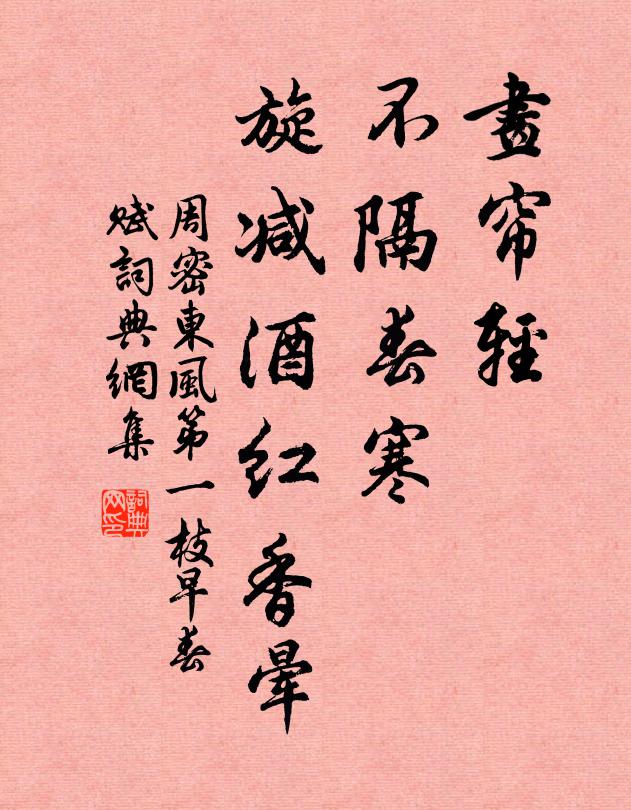 畫帘輕
不隔春寒
旋减酒红香暈
周密東風第一枝早春
赋詞典網集
詞典网印